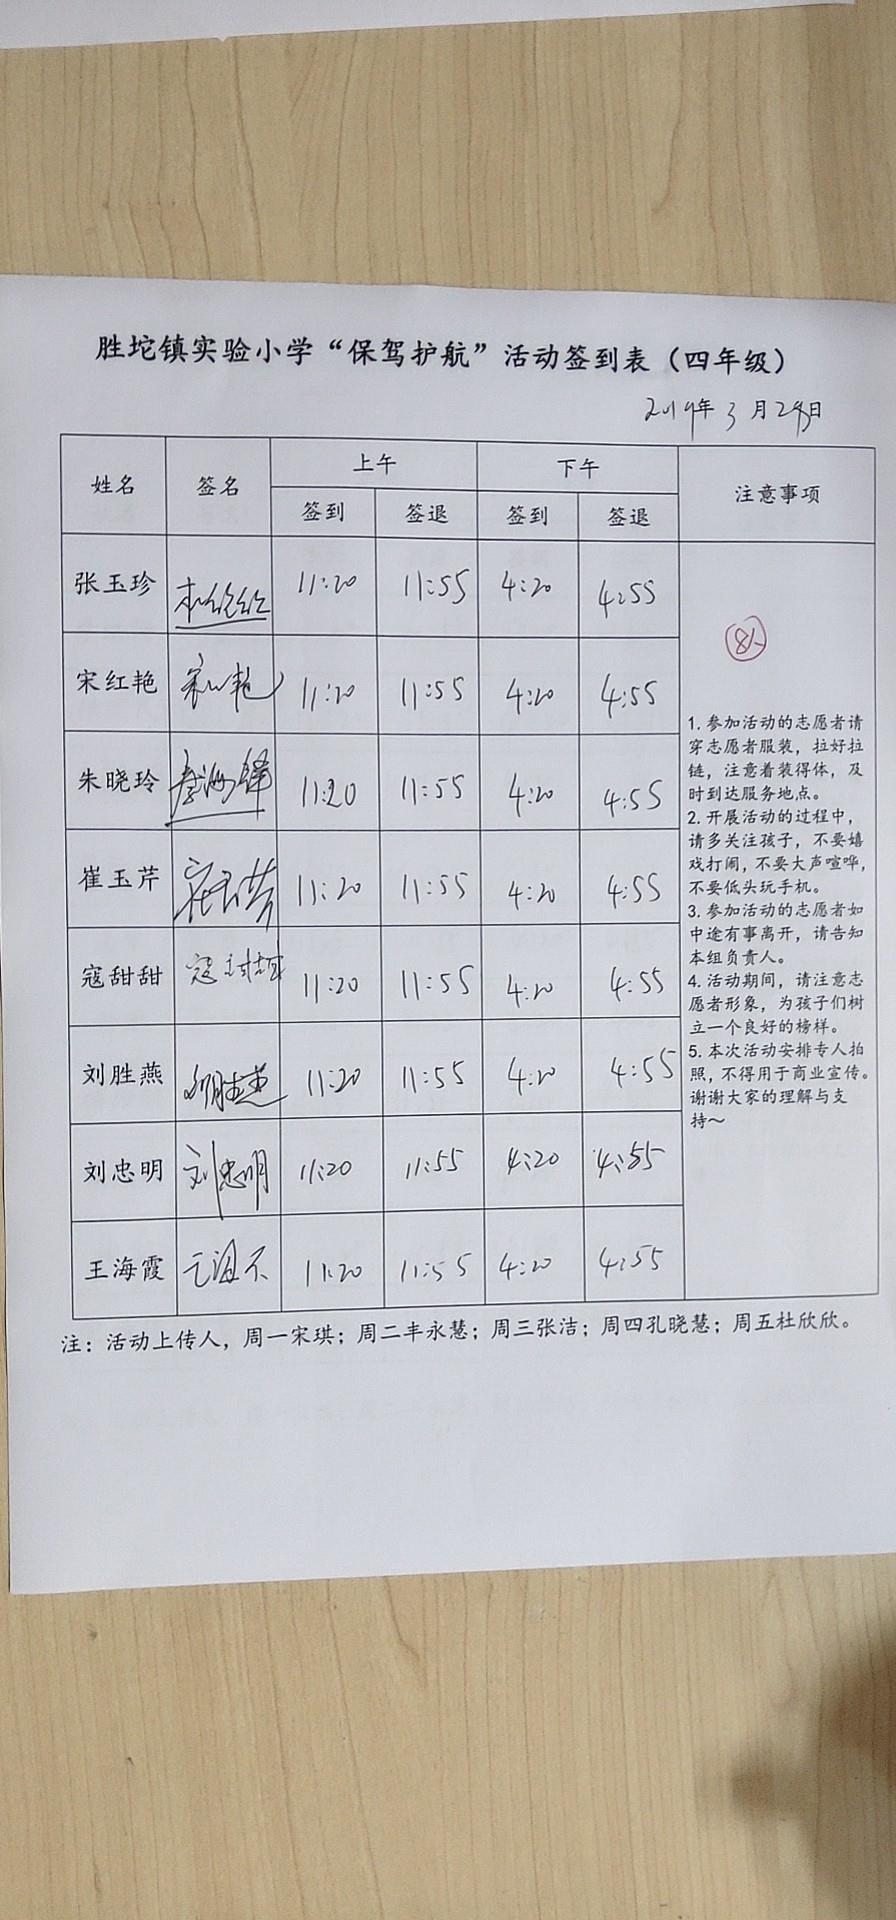 胜坨镇实验小学“保驾护航”活动签到表（四年级）
2019年3月28日
姓名 签名 上午 下午 注意事项
签到 签退 签到 签退
张玉珍 11:20 11:55 4:20 4:55
宋红艳 宋红艳 11:20 11:55 4:20 4:55
朱晓玲 11:20 11:55 4:20 4:55
崔玉芹 崔玉芹 11:20 11:55 4:20 4:55
寇甜甜 寇甜甜 11:20 11:55 4:20 4:55
刘胜燕 刘胜燕 11:20 11:55 4:20 4:55
刘忠明 刘忠明 11:20 11:55 4:20 4:55
王海霞 王海霞 11:20 11:55 4:20 4:55
1. 参加活动的志愿者请
穿志愿者服装，拉好拉
链，注意着装得体，及
时到达服务地点。
2. 开展活动的过程中，
请多关注孩子，不要嬉
戏打闹，不要大声喧哗，
不要低头玩手机。
3. 参加活动的志愿者如
中途有事离开，请告知
本组负责人。
4. 活动期间，请注意志
愿者形象，为孩子们树
立一个良好的榜样。
5. 本次活动安排专人拍
照，不得用于商业宣传。
谢谢大家的理解与支
持～
注：活动上传人，周一宋琪；周二丰永慧；周三张洁；周四孔晓慧；周五杜欣欣。